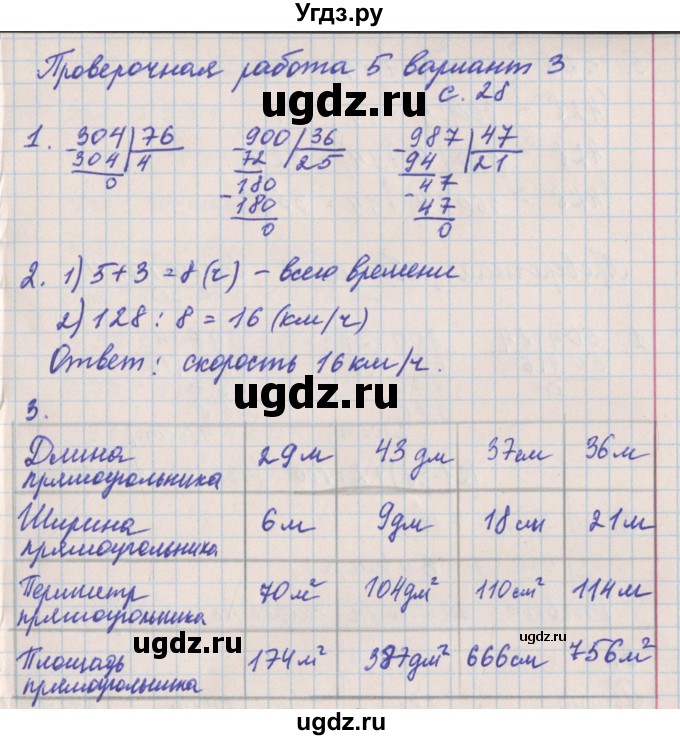 Угдз.ру
Проверочная работа 5 вариант 3
с. 28
ugdz.ru
1. - 304 | 76   - 900 | 36   - 987 | 47
304 | 4   72 | 25   94 | 21
0   - 180   - 47
180   47
0   0
2. 1) 5 + 3 = 8 (ч) - всего времени
2) 128 : 8 = 16 (км/ч)
Ответ: скорость 16 км/ч.
ugdz.ru
3.
Длина прямоугольника 29 м 43 дм 37 см 36 м
Ширина прямоугольника 6 м 9 дм 18 см 21 м
Периметр прямоугольника 70 м² 104 дм² 110 см² 114 м
ugdz.ru
ugdz.ru
Площадь прямоугольника 174 м² 387 дм² 666 см 756 м²
ugdz.ru
ugdz.ru